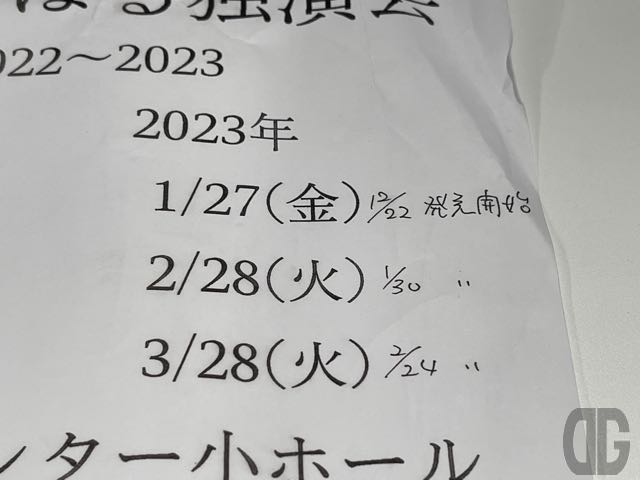 はる独演会
022～2023
2023年
1/27(金) 12/22 発売開始
2/28(火) 1/30 〃
3/28(火) 2/24 〃
ンター小ホール
DG